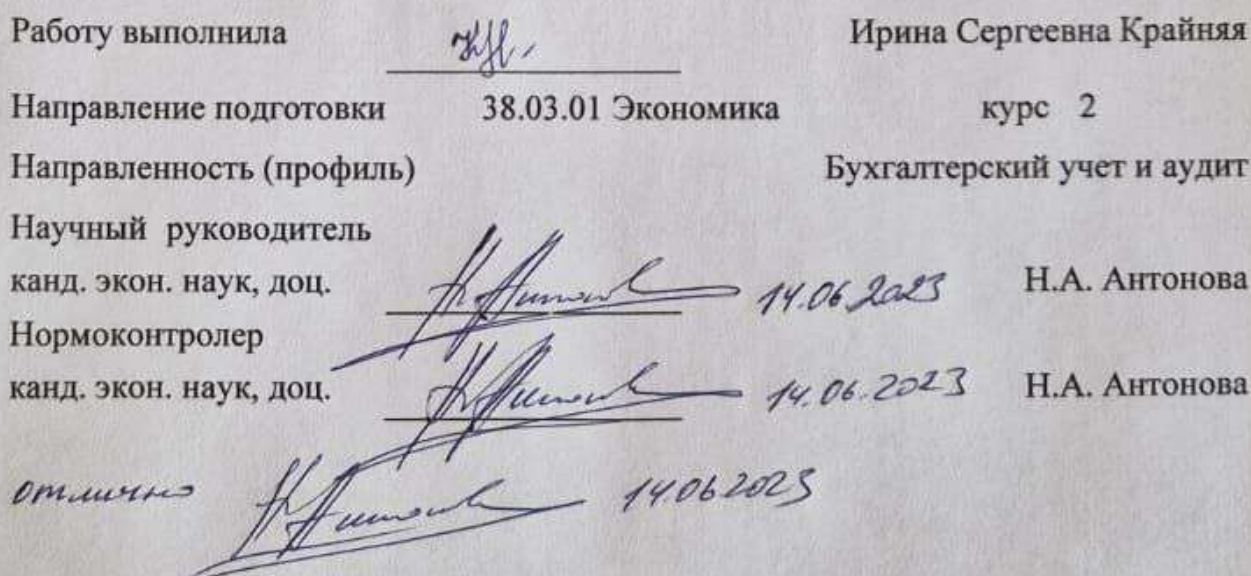 Работу выполнила Ирина Сергеевна Крайняя
Направление подготовки 38.03.01 Экономика курс 2
Направленность (профиль) Бухгалтерский учет и аудит
Научный руководитель
канд. экон. наук, доц. 14.06.2023 Н.А. Антонова
Нормоконтролер
канд. экон. наук, доц. 14.06.2023 Н.А. Антонова
отлично 14.06.2023